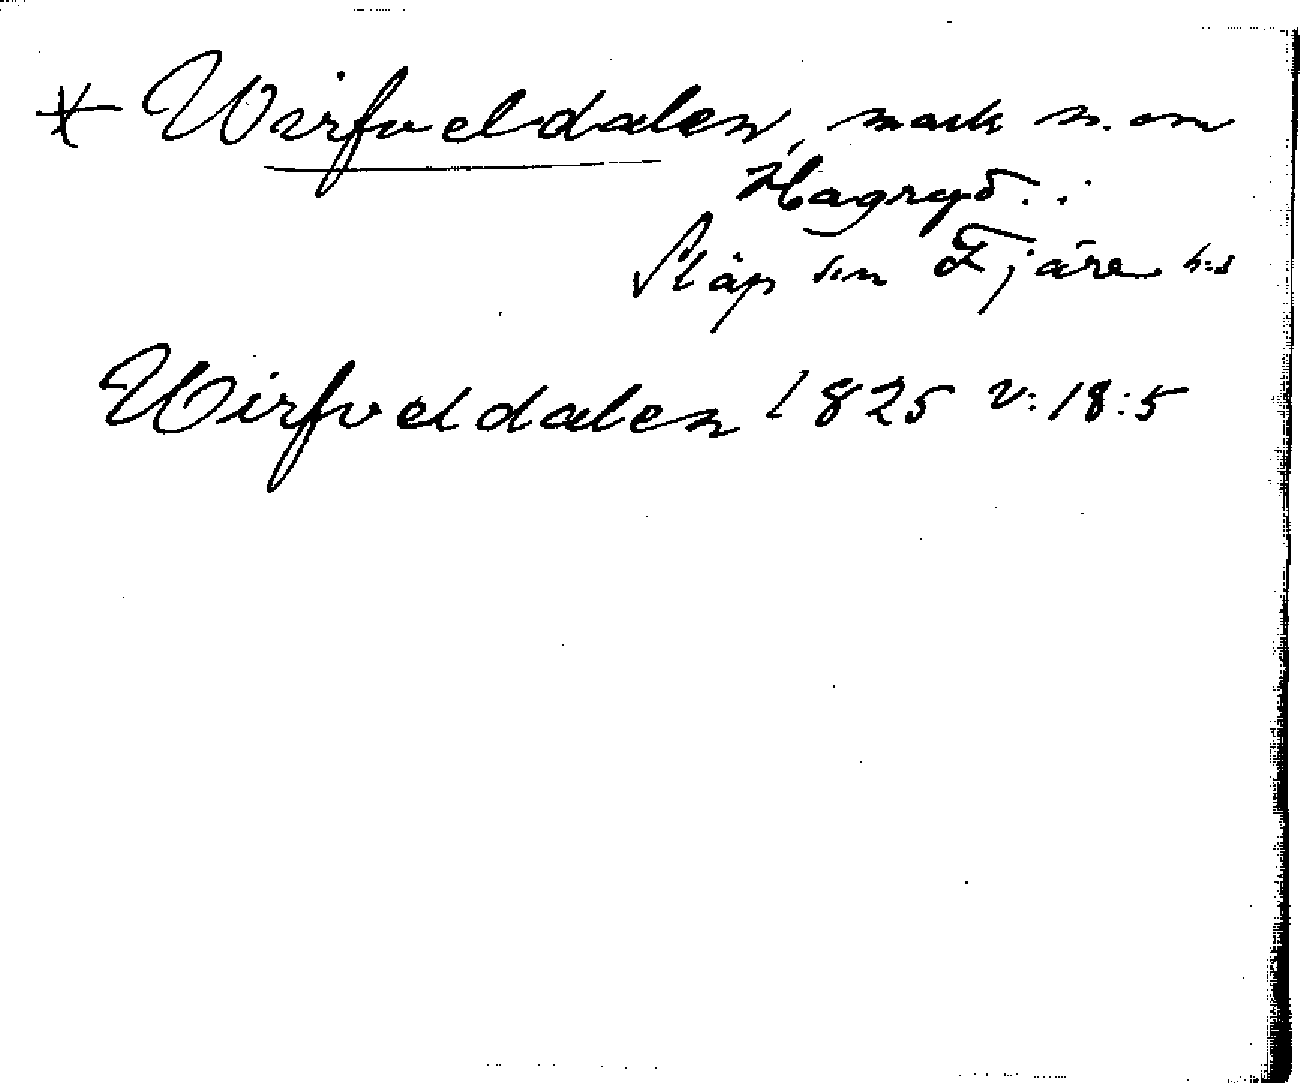 * Wirfveldalen, mark n. om
Hagryd.
Släp sn Fjäre h:d
Wirfveldalen 1825 V:18:5